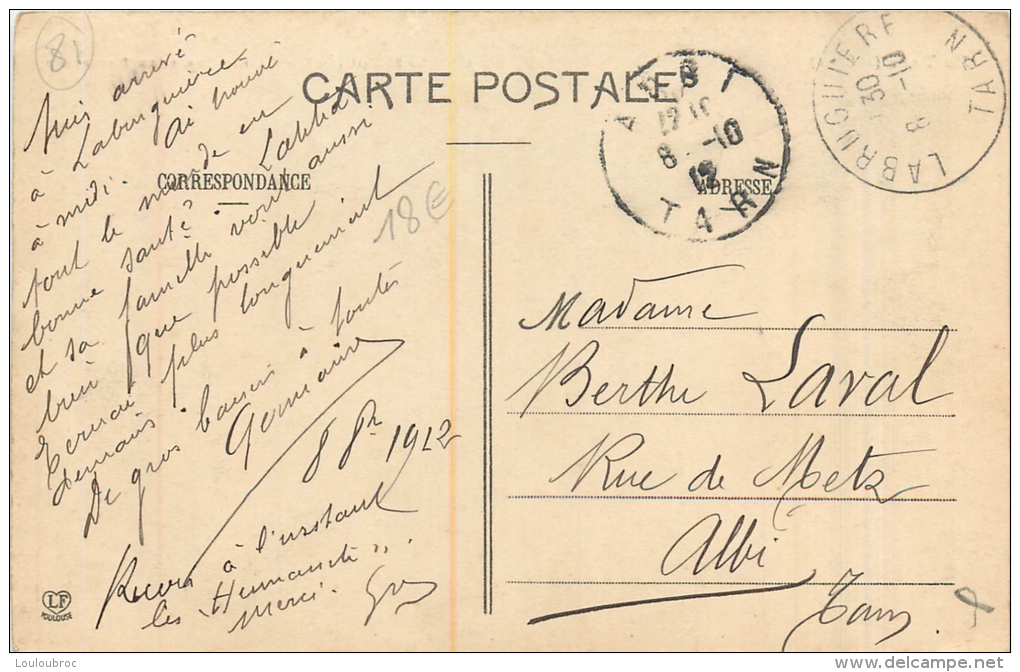 81
CARTE POSTALE
CORRESPONDANCE
ADRESSE
ALBI
8 -10
12
TARN
LABRUGUIERE
8 -10
TARN
18€
Suis arrivé
à Labruguière
à midi. Ai trouvé
tout le monde en
bonne santé
et sa famille vont aussi
bien que possible
Ecrirai plus longuement
demain.
De gros baisers à toutes
Germaine
8 8bre 1912
Recois à l'instant
les "Humanité".
Merci.
Madame
Berthe Laval
Rue de Metz
Albi
Tarn
LF
TOULOUSE
Louloubroc
www.delcampe.net